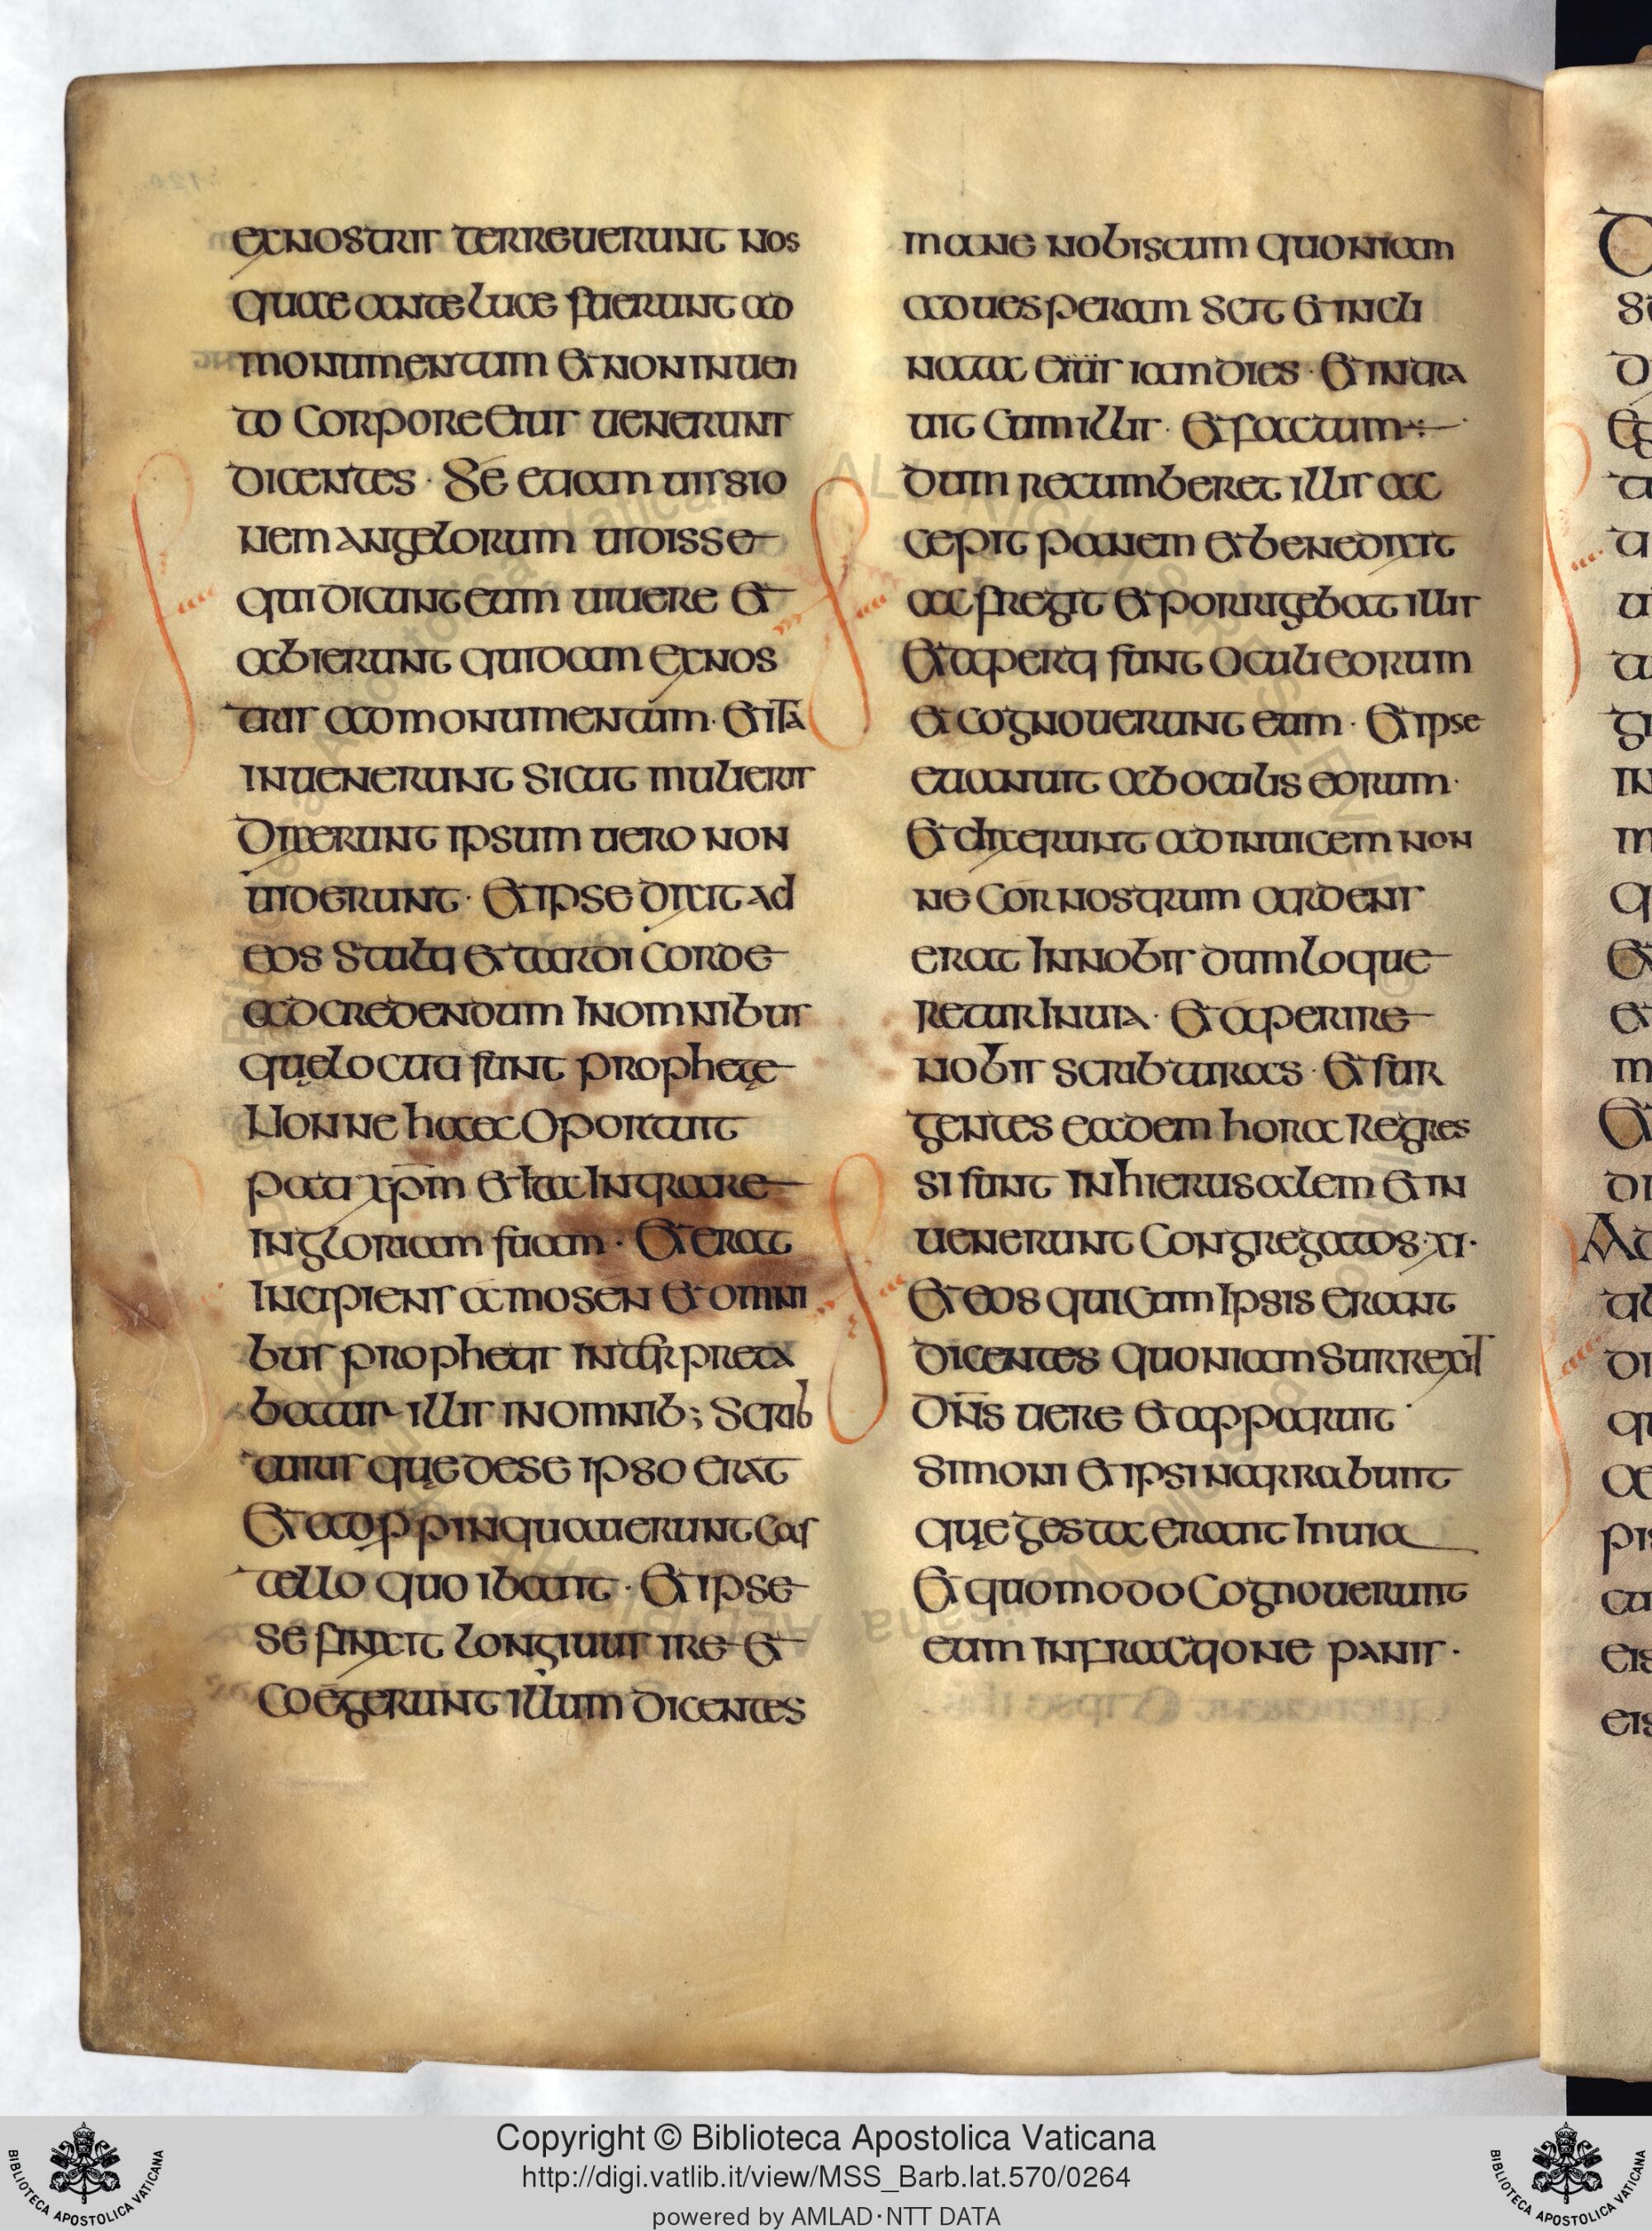 exnostris terreuerunt nos
quae ante luce fuerunt ad
monumentum et non inuen
to corpore eius uenerunt
dicentes · Se etiam uissio
nem angelorum uidisse
qui dicunt eum uiuere et
abierunt quidam ex nos
tris ad monumentum · et ita
inuenerunt sicut mulieris
Dixerunt ipsum uero non
uiderunt · Et ipse dixit ad
eos Stulti et tardi corde
ad credendum In omnibus
quę locuti sunt prophetę
Nonne haec Oportuit
pati xp̄m et ita Intrare
In gloriam suam · Et erat
Incipiens a mosen et omni
bus prophetis interpreta
batur illis in omnib; Scrib
turis quę de se ipso erat
Et adpropinquauerunt Cas
tello quo ibant · Et ipse
se finxit longius ire et
Coegerunt illum dicentes
mane nobiscum quoniam
ad uesperam scit et incli
nata eius iam dies · Et intra
uit Cum illis · Et factum ÷
dum recumberet illis ac
cepit panem et benedixit
ac fregit et porrigebat illis
Et aperti sunt Oculi eorum
et cognouerunt eum · Et ipse
euanuit ab oculis eorum ·
Et dixerunt ad inuicem non
ne Cor nostrum ardens
erat In nobis dum loque
retur In uia · Et aperire
nobis scribturas · Et sur
gentes eadem hora Regres
si sunt In hierusalem et in
uenerunt Congregatos · xi ·
Et eos qui Cum Ipsis erant
dicentes quoniam surrexit
Dn̄s uere et apparuit ·
Simoni et ipsi narrabunt
quę gesta erant In uia
Et quomodo Cognouerunt
eum in fractione panis ·
Copyright © Biblioteca Apostolica Vaticana
http://digi.vatlib.it/view/MSS_Barb.lat.570/0264
powered by AMLAD·NTT DATA
BIBLIOTECA APOSTOLICA VATICANA
BIBLIOTECA APOSTOLICA VATICANA